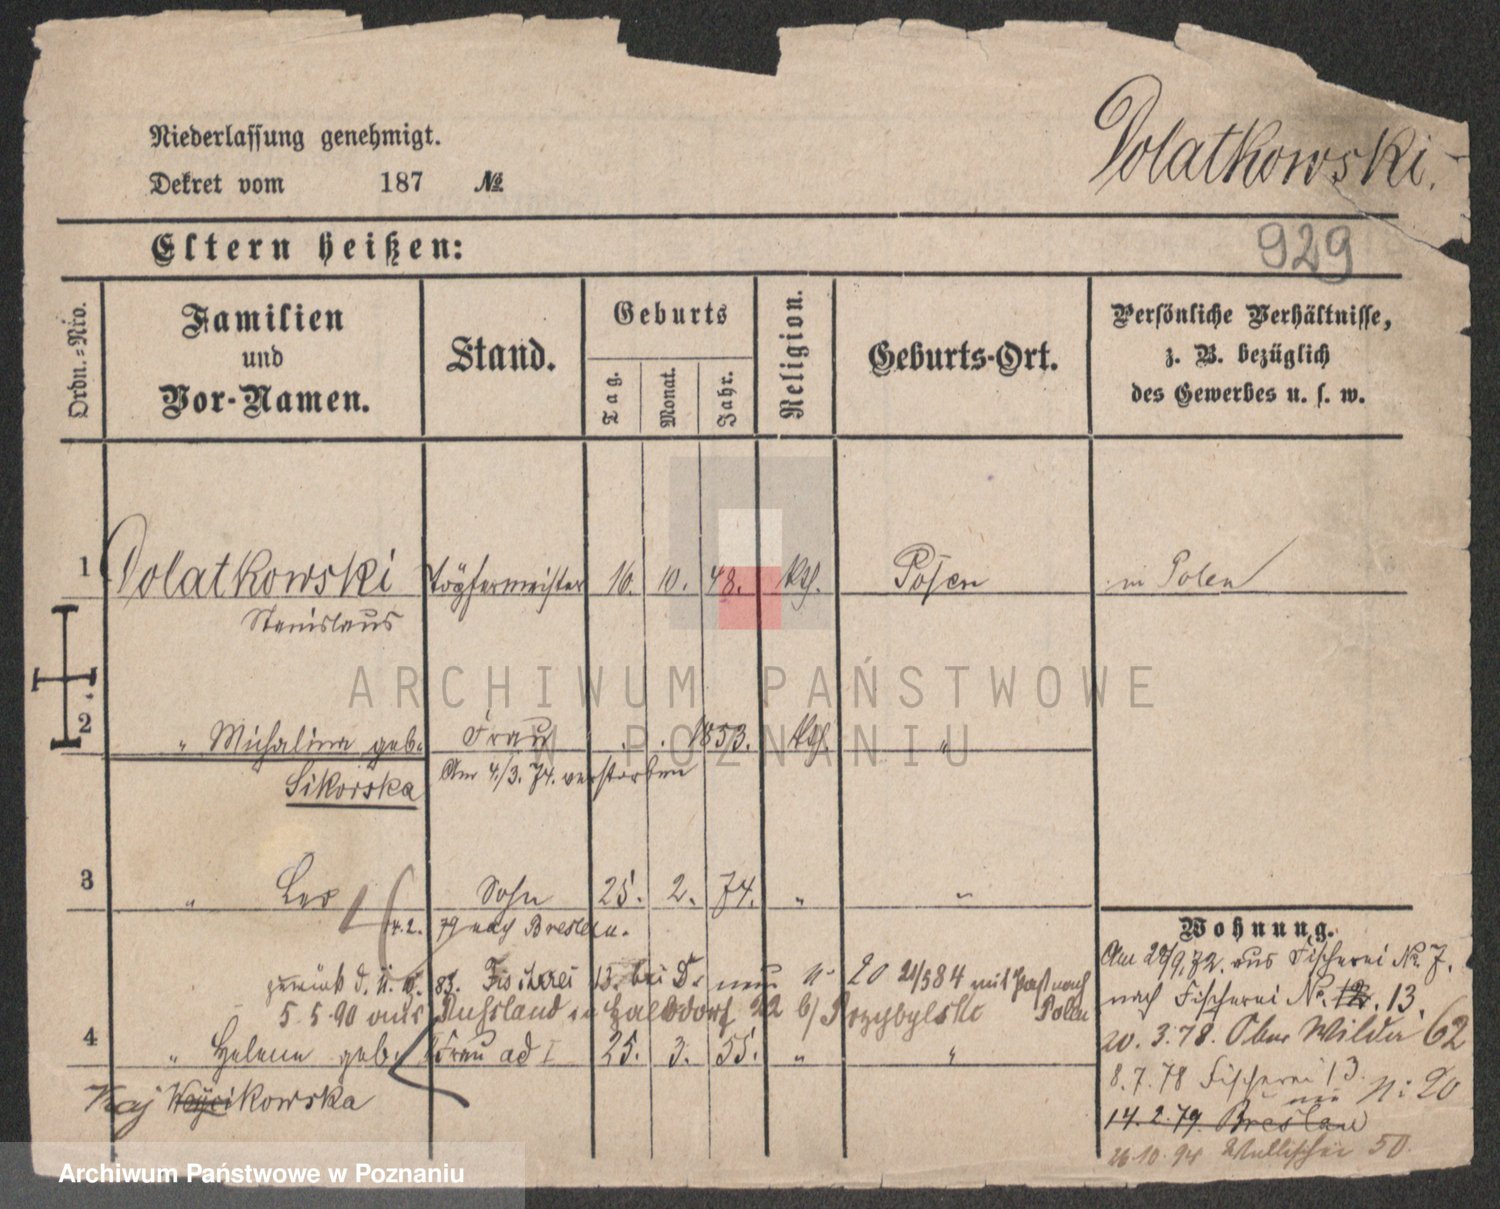 Dolatkowski.
Niederlassung genehmigt.
Dekret vom 187 №
Eltern heißen:
929
Ordn.=Nro.
Familien
und
Vor-Namen.
Stand.
Geburts
Tag.
Monat.
Jahr.
Religion.
Geburts-Ort.
Persönliche Verhältnisse,
z. B. bezüglich
des Gewerbes u. s. w.
1 Dolatkowski Töpfermeister 16. 10. 48. kth. Posen in Polen
Stanislaus
2 " Michalina geb. Frau . . 1853. kth. "
Sikorska Am 4/3. 74. verstorben
3 " Leo Sohn 25. 2. 74. " "
14.2. 79 nach Breslau.
zurück d. 11. 83. Fischerei 13. bei D. nun n 20 21/5 84 mit Paß nach
5.5.90 aus Russland in 22 b/ Przybylski Polen
4 " Helene geb. Frau ad I 25. 3. 55. " "
Kaj kowska
Wohnung.
Am 29/9.72. aus Fischerei № 7.
nach Fischerei No. 12. 13.
20. 3. 78. Ober Wilda 62
8. 7. 78 Fischerei 13.
nun N: 20
14. 2. 79. Breslau
26.10.94 Wallischei 50.
ARCHIWUM PAŃSTWOWE
W POZNANIU
Archiwum Państwowe w Poznaniu